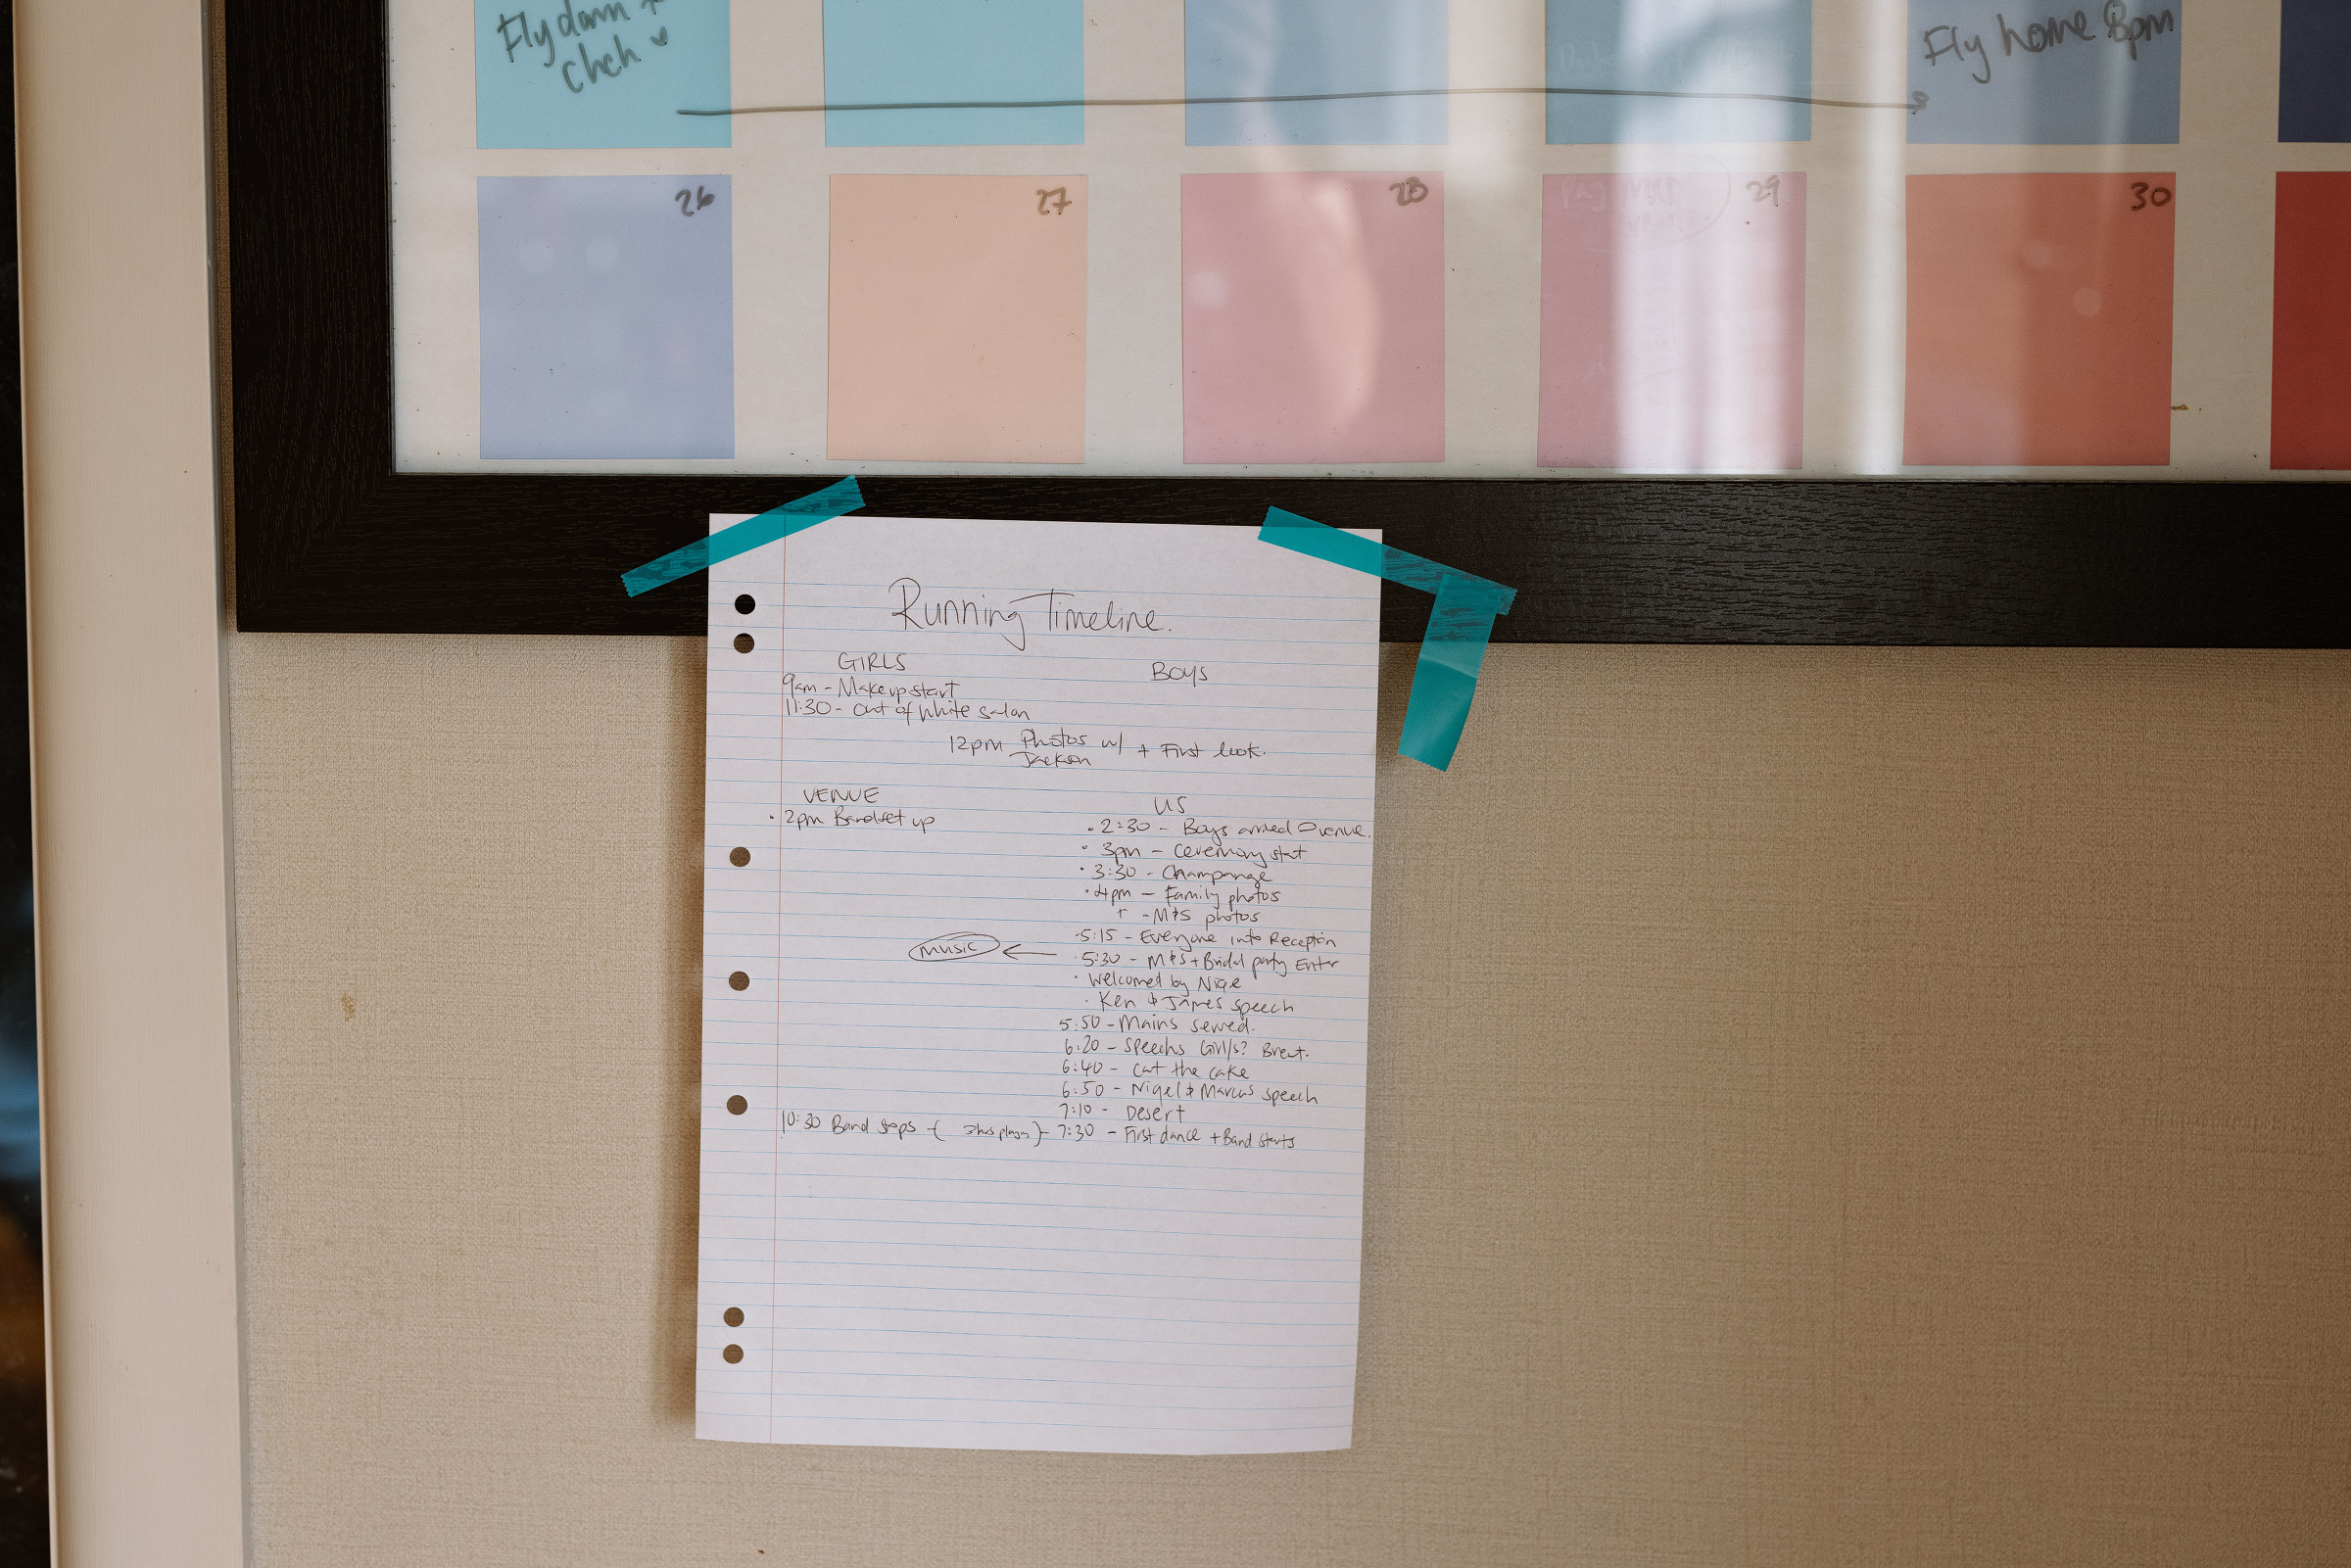 Fly down +
chch
Fly home 8pm
26
27
28
29
30
Running Timeline.
GIRLS
BOYS
9am - Makeup start
11:30 - out of white salon
12pm Photos w/ + First look.
Jackson
VENUE
• 2pm Band set up
US
• 2:30 - Boys arrived venue.
• 3pm - Ceremony start
• 3:30 - Champange
• 4pm - Family photos
+ - M+S photos
• 5:15 - Everyone into Reception
music ← • 5:30 - M+S + Bridal party Enter
• Welcomed by Nige
• Ken & James speech
5:50 - Mains served.
6:20 - Speechs Girl/s? Brent.
6:40 - cut the cake
6:50 - Nigel & Marcus speech
7:10 - Desert
10:30 Band stops - ( 3hrs playing ) - 7:30 - First dance + Band starts